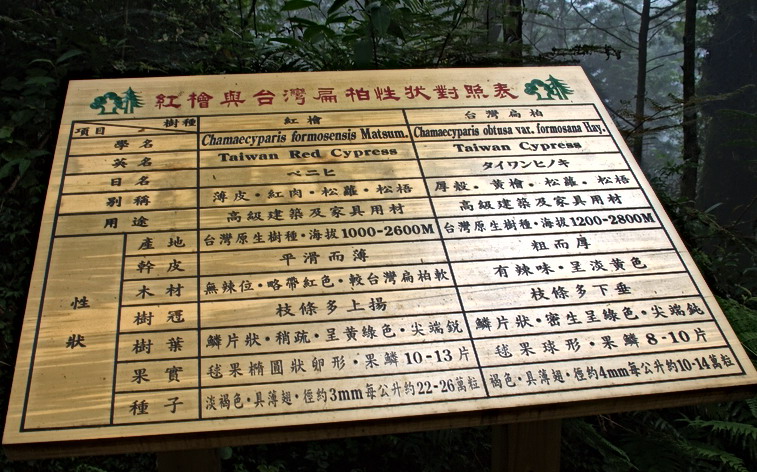 紅檜與台灣扁柏性狀對照表
項目 樹種 紅檜 台灣扁柏
學名 Chamaecyparis formosensis Matsum. Chamaecyparis obtusa var. formosana Hay.
英名 Taiwan Red Cypress Taiwan Cypress
日名 ベニヒ タイワンヒノキ
別稱 薄皮·紅肉·松蘿·松梧 厚殼·黃檜·松蘿·松梧
用途 高級建築及家具用材 高級建築及家具用材
性狀
產地 台灣原生樹種·海拔1000-2600M 台灣原生樹種·海拔1200-2800M
幹皮 平滑而薄 粗而厚
木材 無辣位·略帶紅色·較台灣扁柏軟 有辣味·呈淡黃色
樹冠 枝條多上揚 枝條多下垂
樹葉 鱗片狀·稍疏·呈黃綠色·尖端銳 鱗片狀·密生呈綠色·尖端鈍
果實 毬果橢圓狀卵形·果鱗10-13片 毬果球形·果鱗8-10片
種子 淡褐色·具薄翅·徑約3mm每公升約22-26萬粒 褐色·具薄翅·徑約4mm每公升約10-14萬粒